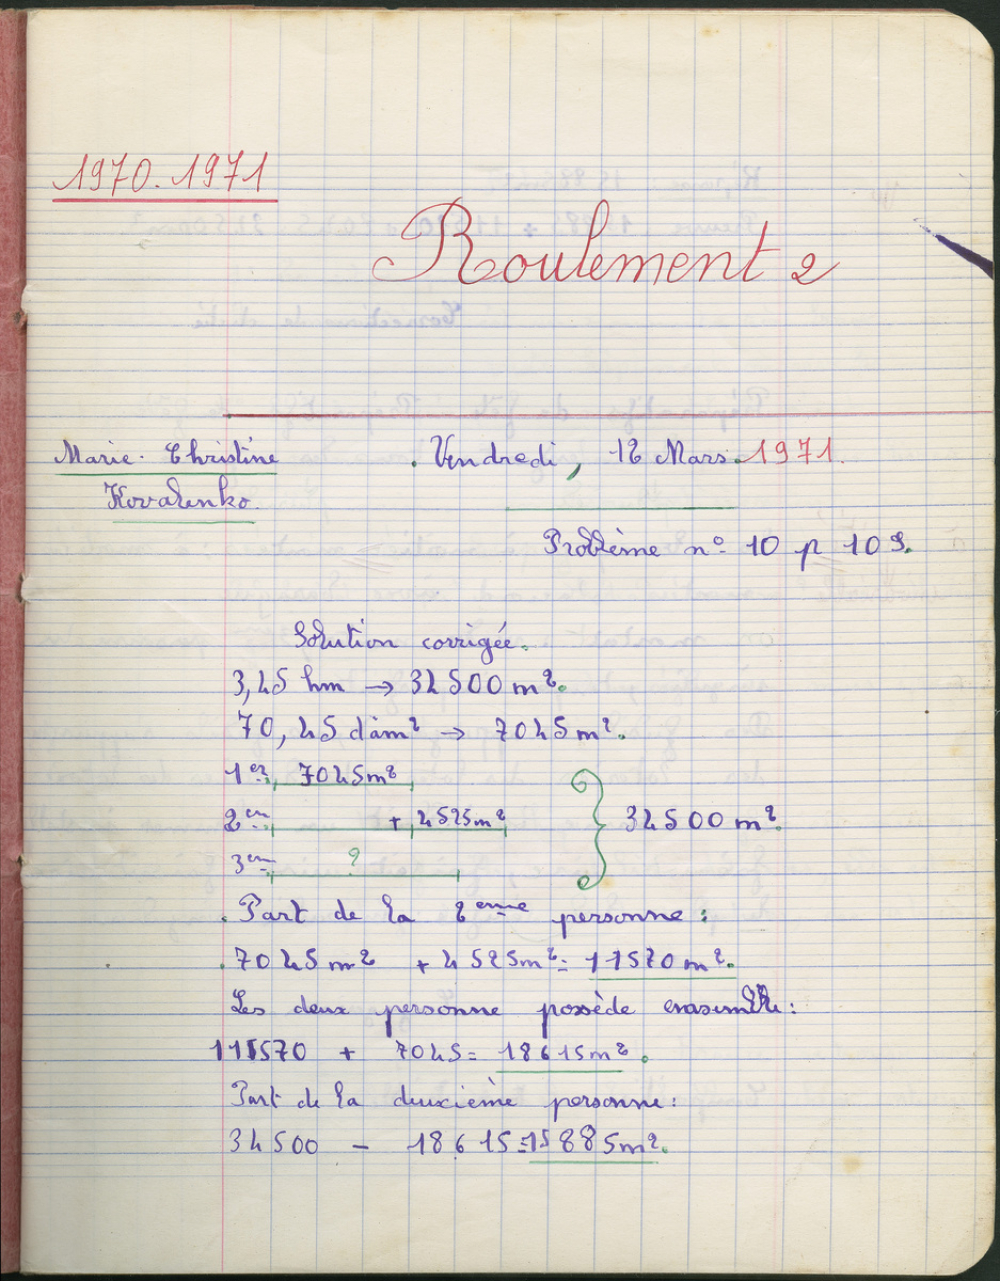 1970.1971
Roulement 2
Marie-Christine . Vendredi, 12 Mars 1971.
Kovalenko.
Problème n° 10 p 109.
Solution corrigée.
3,45 hm → 34500 m².
70,45 dam² → 7045 m².
1er 7045m²
2em + 4525m² 34500 m².
3em ?
. Part de la 2eme personne :
. 7045 m² + 4525m² = 11570 m².
Les deux personne possède ensemble :
115570 + 7045 = 18615m².
Part de la deuxième personne :
34500 - 18615=15885m².